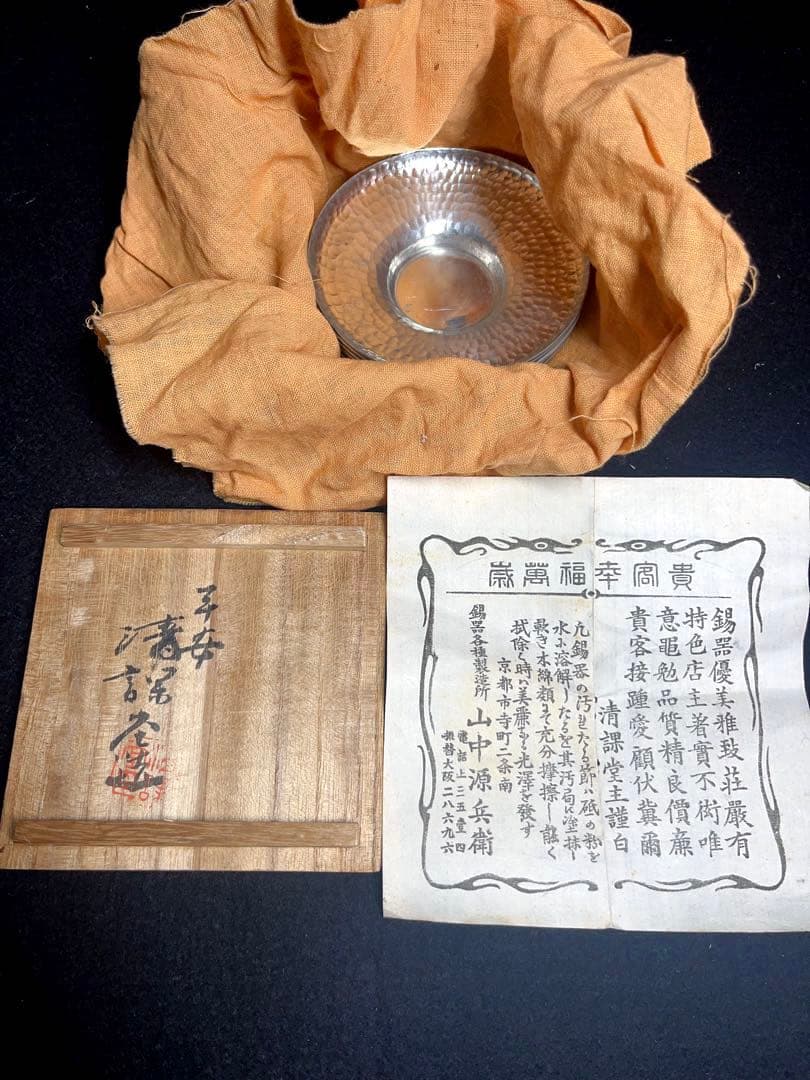 平安
清課堂造
貴客幸福萬歳
錫器優美雅致莊嚴有
特色店主着實不衒唯
意黽勉品質精良價廉
貴客接踵愛顧伏冀爾
清課堂主謹白
凢錫器の汚れたる節ハ砥の粉を
水に溶解したるを其汚局に塗抹し
乾き木綿類にて充分摩擦し能く
拭除く時ハ美麗なる光澤を發す
京都市寺町二条南
錫器各種製造所 山中源兵衛
電話上三五壹四
振替大阪二八六九六